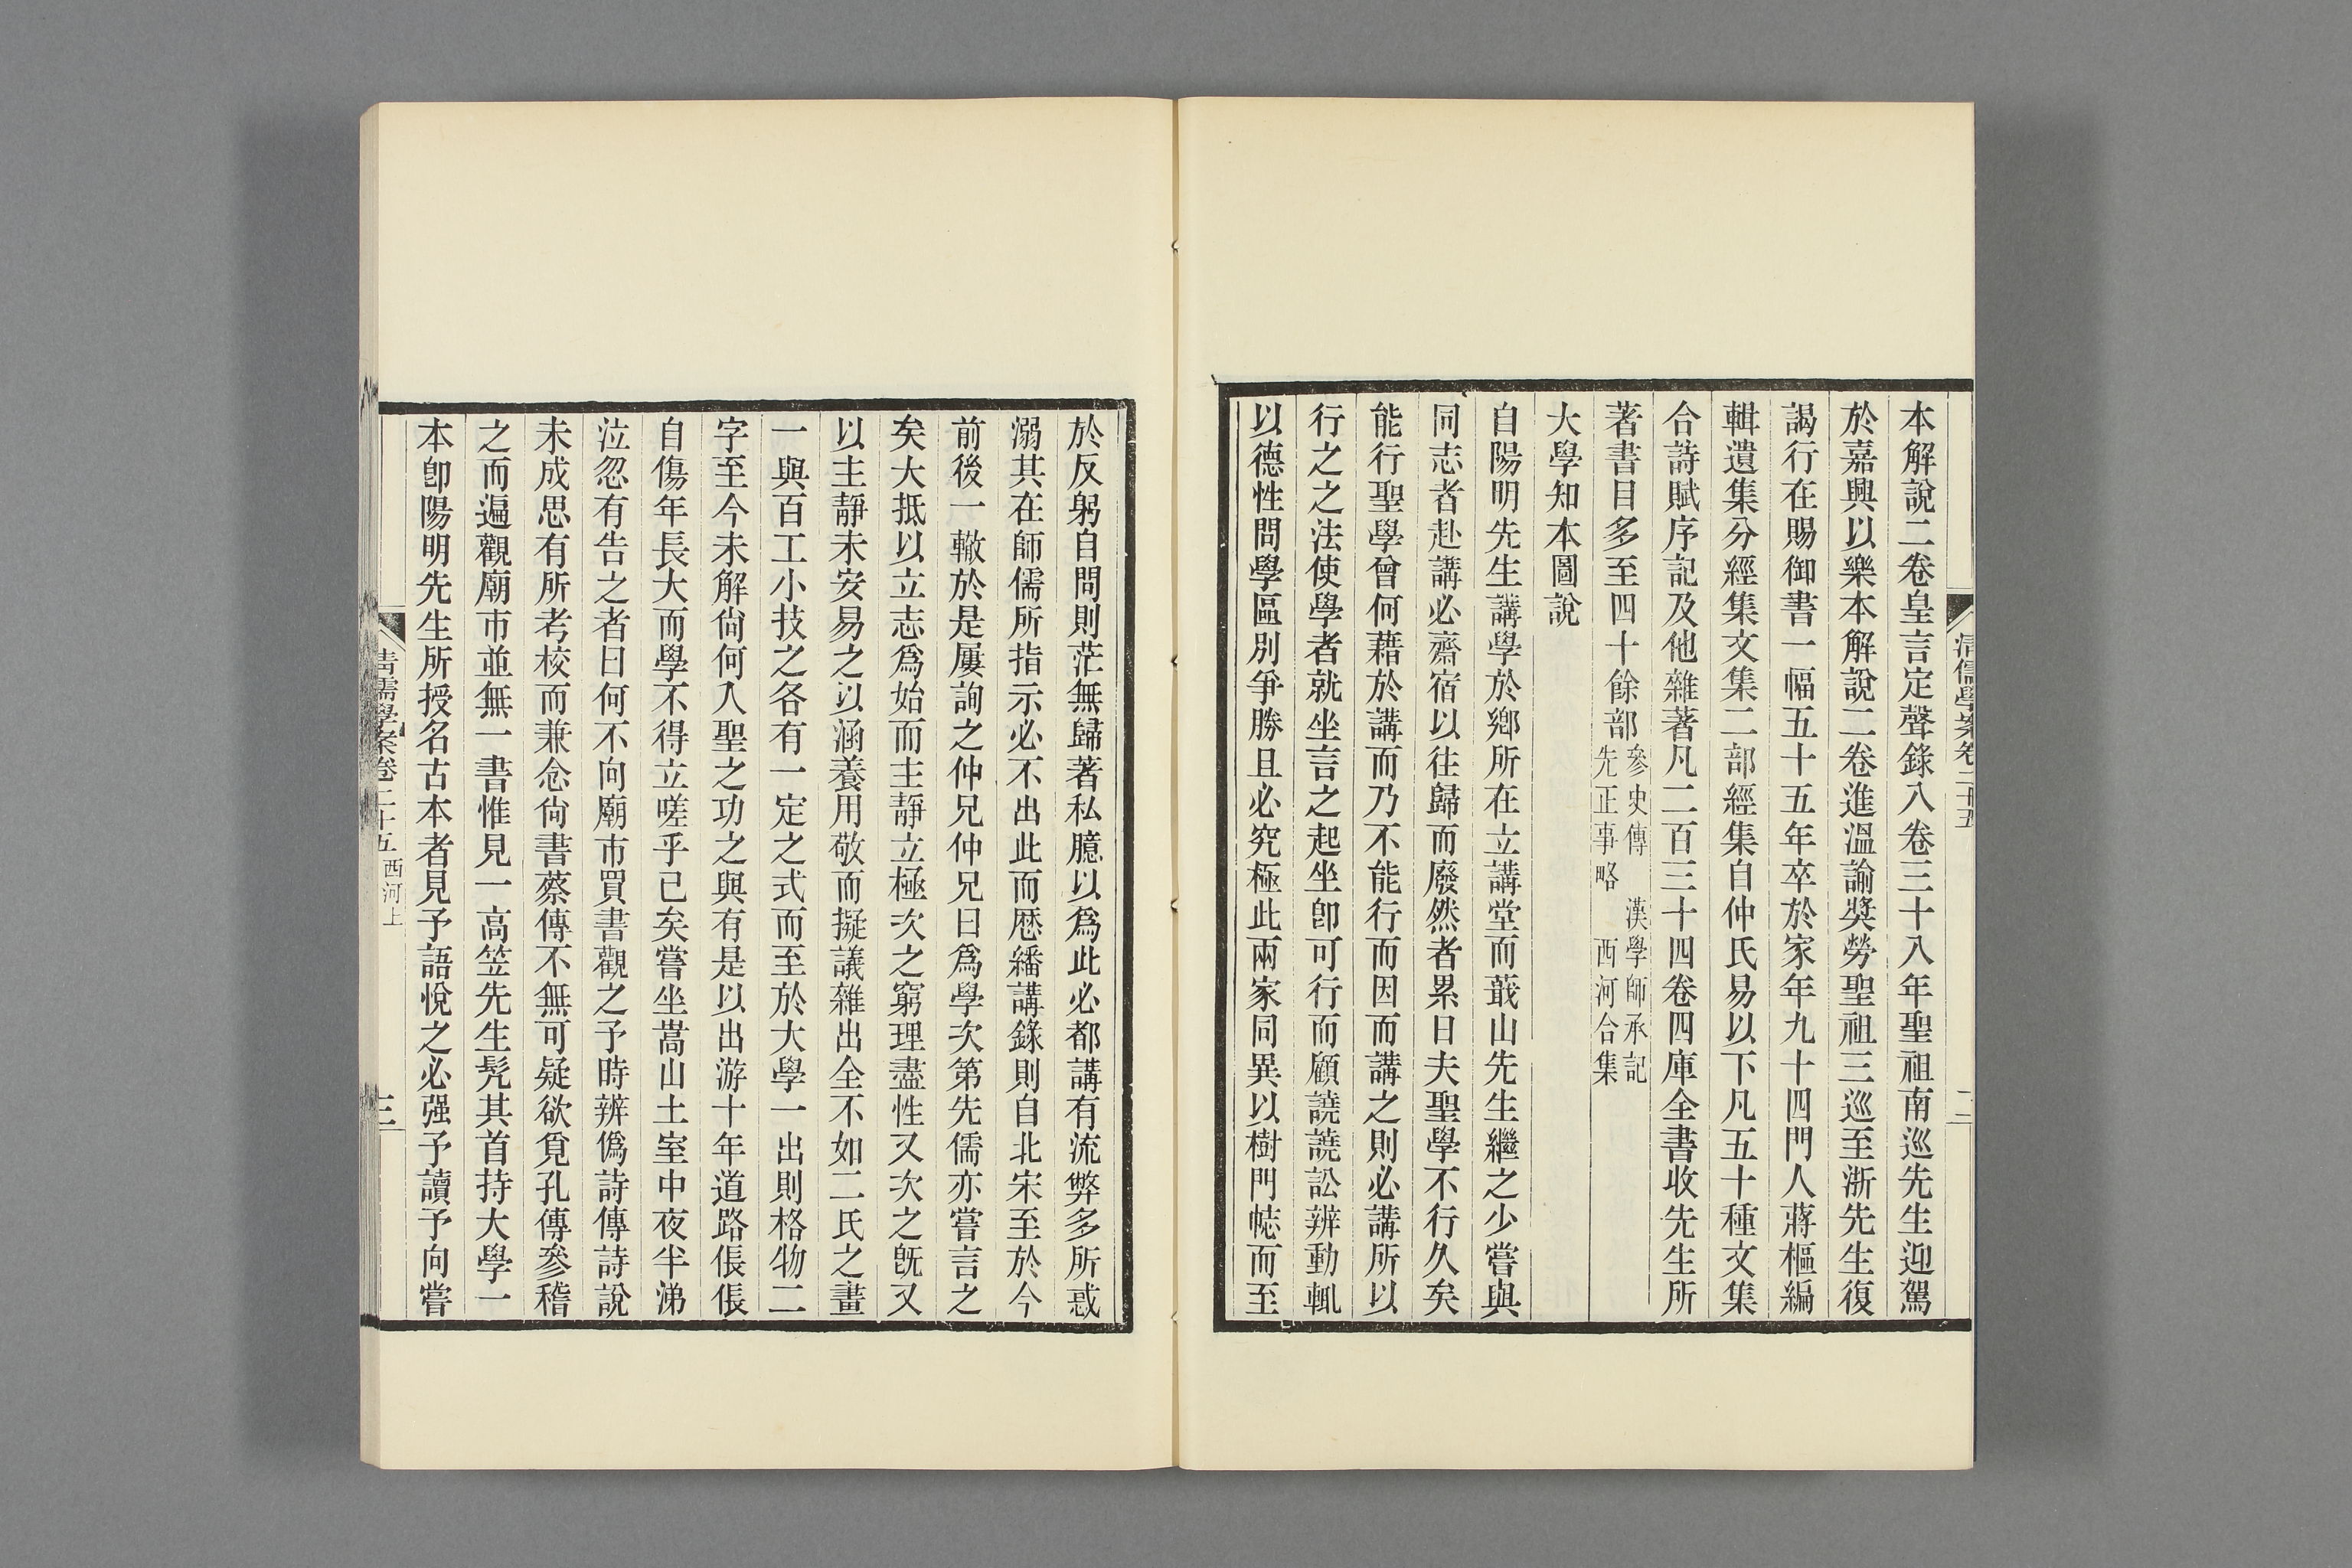 本解說二卷皇言定聲錄八卷三十八年聖祖南巡先生迎駕
於嘉興以樂本解說二卷進溫諭獎勞聖祖三巡至浙先生復
謁行在賜御書一幅五十五年卒於家年九十四門人蔣樞編
輯遺集分經集文集二部經集自仲氏易以下凡五十種文集
合詩賦序記及他雜著凡二百三十四卷四庫全書收先生所
著書目多至四十餘部參史傳 漢學師承記
先正事略 西河合集
大學知本圖說
自陽明先生講學於鄉所在立講堂而蕺山先生繼之少嘗與
同志者赴講必齋宿以往歸而廢然者累日夫聖學不行久矣
能行聖學曾何藉於講而乃不能行而因而講之則必講所以
行之之法使學者就坐言之起坐卽可行而顧譊譊訟辨動輒
以德性問學區別爭勝且必究極此兩家同異以樹門幟而至
於反躬自問則茫無歸著私臆以爲此必都講有流弊多所惑
溺其在師儒所指示必不出此而歷繙講錄則自北宋至於今
前後一轍於是屢詢之仲兄仲兄曰爲學次第先儒亦嘗言之
矣大抵以立志爲始而主靜立極次之窮理盡性又次之旣又
以主靜未安易之以涵養用敬而擬議雜出全不如二氏之畫
一與百工小技之各有一定之式而至於大學一出則格物二
字至今未解尙何入聖之功之與有是以出游十年道路倀倀
自傷年長大而學不得立嗟乎已矣嘗坐嵩山土室中夜半涕
泣忽有告之者曰何不向廟市買書觀之予時辨僞詩傳詩說
未成思有所考校而兼念尙書蔡傳不無可疑欲覓孔傳參稽
之而遍觀廟市並無一書惟見一高笠先生髠其首持大學一
本卽陽明先生所授名古本者見予語悅之必强予讀予向嘗
清儒學案卷二十五 西河上
三